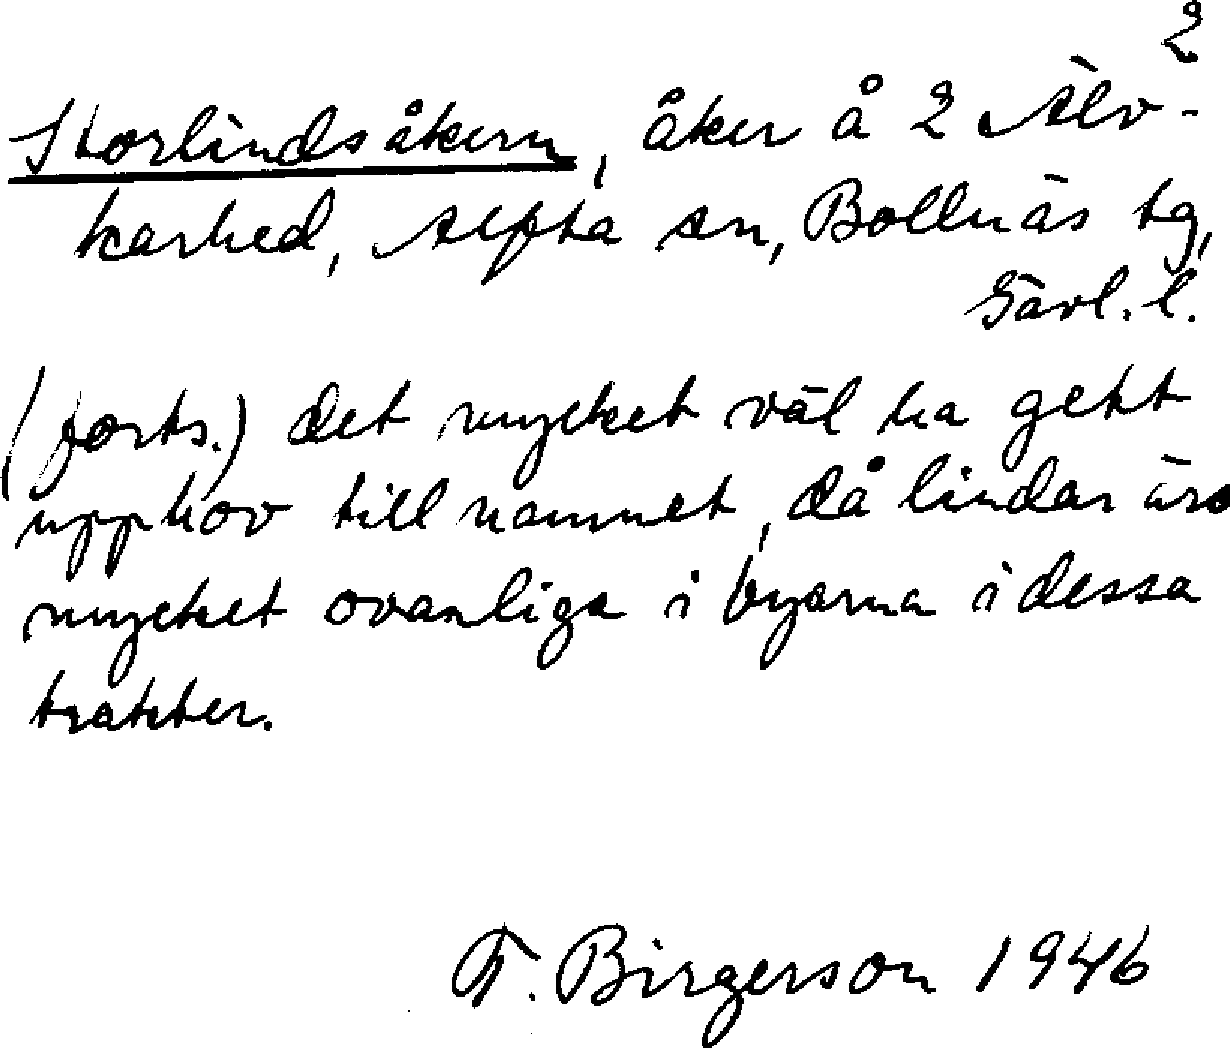 2
Storlindsåkern, åker å 2 Älv-
karhed, Alfta sn, Bollnäs tg,
Gävl. l.
(forts.) det mycket väl ha gett
upphov till namnet, då lindar äro
mycket ovanliga i byarna i dessa
trakter.
F. Birgerson 1946